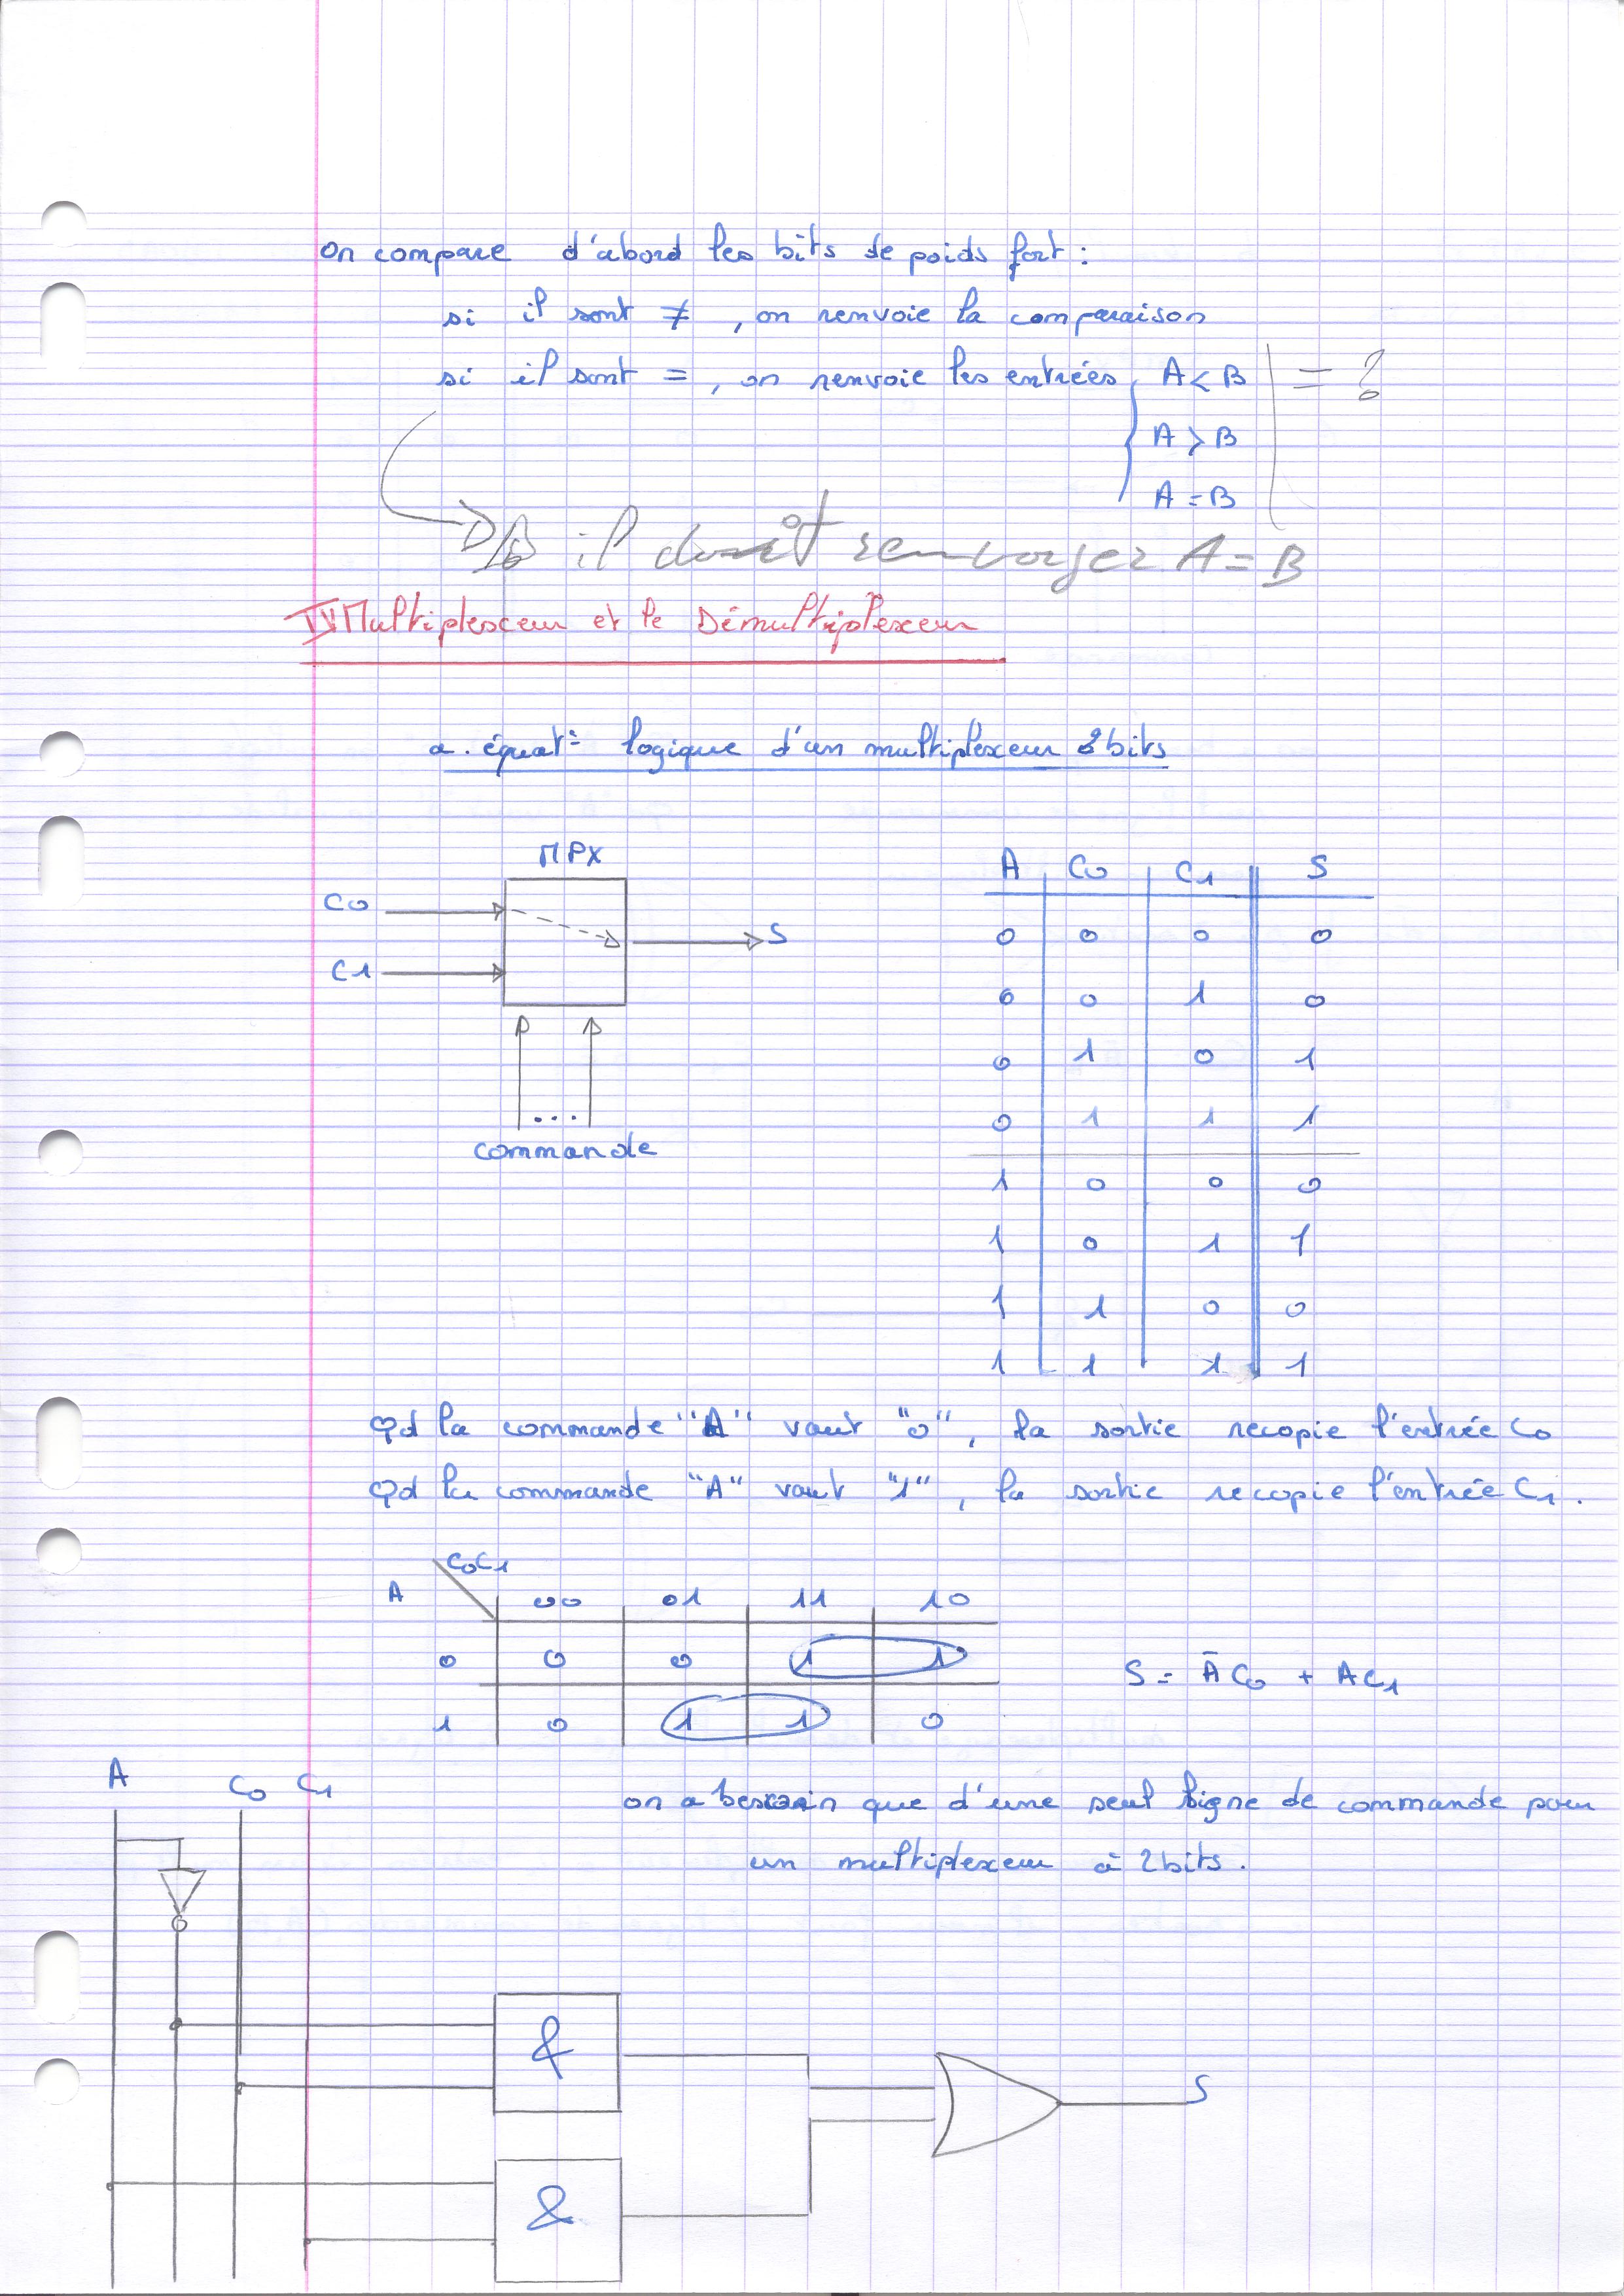 on compare d'abord les bits de poids fort :
si il sont ≠, on renvoie la comparaison
si il sont =, on renvoie les entrées { A < B | = ?
A > B
A = B
il doit renvoyer A = B
IV Multiplexeur et le Démultiplexeur
a. équat° logique d'un multiplexeur 2 bits
MPX
C0
C1
S
...
commande
A C0 C1 S
0 0 0 0
0 0 1 0
0 1 0 1
0 1 1 1
1 0 0 0
1 0 1 1
1 1 0 0
1 1 1 1
Qd la commande "A" vaut "0", la sortie recopie l'entrée C0
Qd la commande "A" vaut "1", la sortie recopie l'entrée C1.
C0C1
A 00 01 11 10
0 0 0 1 1
1 0 1 1 0
S = Ā C0 + AC1
A C0 C1
on a besoin que d'une seul ligne de commande pour
un multiplexeur à 2 bits.
&
&
S